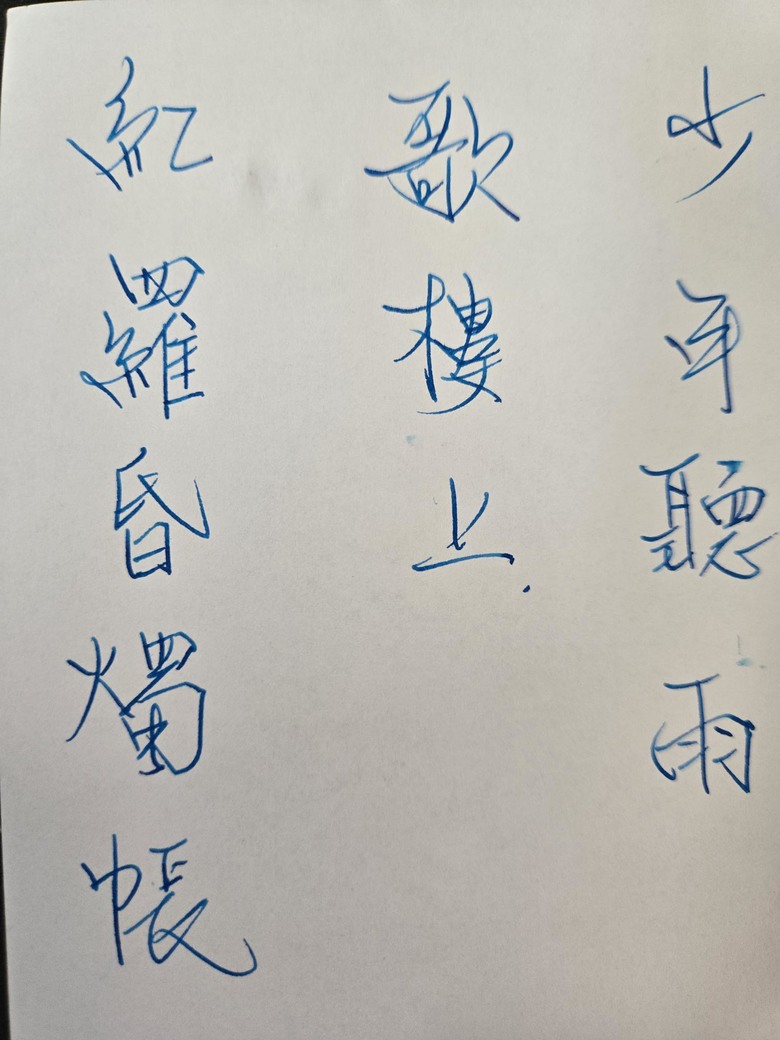 少年聽雨
歌樓上.
紅羅昏燭帳